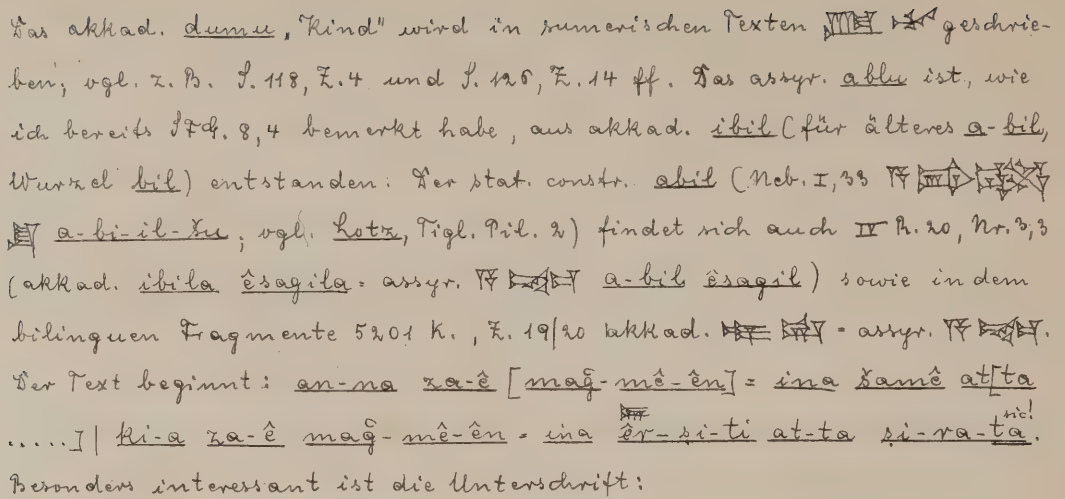 Das akkad. dumu „Kind" wird in sumerischen Texten geschrie-
ben; vgl. z. B. S. 118, Z. 4 und S. 126, Z. 14 ff. Das assyr. ablu ist, wie
ich bereits 8, 4 bemerkt habe, aus akkad. ibil (für älteres a-bil,
Wurzel bil) entstanden: Der stat. constr. abil (Neb. I, 33
a-bi-il-šu; vgl. Lotz, Tigl. Pil. 2) findet sich auch IV R. 20, Nr. 3, 3
(akkad. ibila êsagila = assyr. a-bil êsagil) sowie in dem
bilinguen Fragmente 5201 K., Z. 19/20 akkad. = assyr.
Der Text beginnt: an-na za-ê [maĝ-mê-ên] = ina šamê at[ta
.....] | ki-a za-ê maĝ-mê-ên = ina êr-ṣi-ti at-ta ṣi-ra-ta sic!.
Besonders interessant ist die Unterschrift: